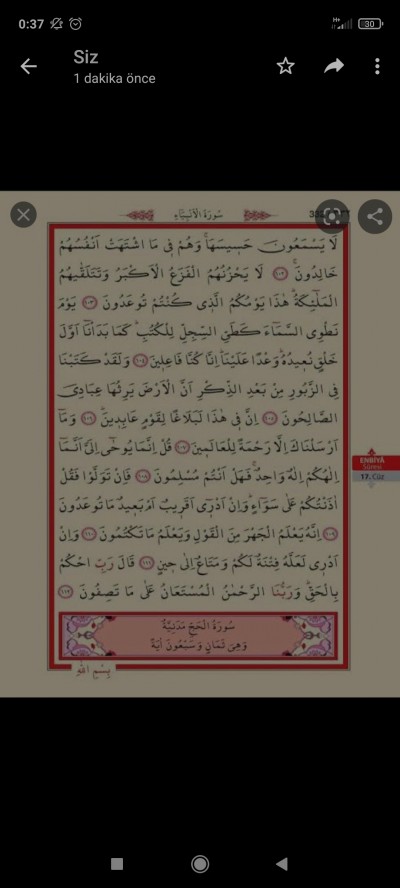 0:37
H+
30
Siz
1 dakika önce
سُورَةُ الْاَنْبِيَاءِ
لَا يَسْمَعُونَ حَسِيسَهَاۚ وَهُمْ فِى مَا اشْتَهَتْ اَنْفُسُهُمْ
خَالِدُونَۚ ﴿١٠٢﴾ لَا يَحْزُنُهُمُ الْفَزَعُ الْاَكْبَرُ وَتَتَلَقّٰيهُمُ
الْمَلٰٓئِكَةُۜ هٰذَا يَوْمُكُمُ الَّذٖى كُنْتُمْ تُوعَدُونَ ﴿١٠٣﴾ يَوْمَ
نَطْوِى السَّمَٓاءَ كَطَىِّ السِّجِلِّ لِلْكُتُبِۜ كَمَا بَدَأْنَٓا اَوَّلَ
خَلْقٍ نُعٖيدُهُۜ وَعْدًا عَلَيْنَاۜ اِنَّا كُنَّا فَاعِلٖينَ ﴿١٠٤﴾ وَلَقَدْ كَتَبْنَا
فِى الزَّبُورِ مِنْ بَعْدِ الذِّكْرِ اَنَّ الْاَرْضَ يَرِثُهَا عِبَادِىَ
الصَّالِحُونَ ﴿١٠٥﴾ اِنَّ فٖى هٰذَا لَبَلَاغًا لِقَوْمٍ عَابِدٖينَۜ ﴿١٠٦﴾ وَمَٓا
اَرْسَلْنَاكَ اِلَّا رَحْمَةً لِلْعَالَمٖينَ ﴿١٠٧﴾ قُلْ اِنَّمَا يُوحٰٓى اِلَىَّ اَنَّمَٓا
اِلٰهُكُمْ اِلٰهٌ وَاحِدٌۚ فَهَلْ اَنْتُمْ مُسْلِمُونَ ﴿١٠٨﴾ فَاِنْ تَوَلَّوْا فَقُلْ
اٰذَنْتُكُمْ عَلٰى سَوَٓاءٍۜ وَاِنْ اَدْرٖٓى اَقَرٖيبٌ اَمْ بَعٖيدٌ مَا تُوعَدُونَ
﴿١٠٩﴾ اِنَّهُ يَعْلَمُ الْجَهْرَ مِنَ الْقَوْلِ وَيَعْلَمُ مَا تَكْتُمُونَ ﴿١١٠﴾ وَاِنْ
اَدْرٖى لَعَلَّهُ فِتْنَةٌ لَكُمْ وَمَتَاعٌ اِلٰى حٖينٍ ﴿١١١﴾ قَالَ رَبِّ احْكُمْ
بِالْحَقِّۜ وَرَبُّنَا الرَّحْمٰنُ الْمُسْتَعَانُ عَلٰى مَا تَصِفُونَ ﴿١١٢﴾
ENBİYÂ
Sûresi
17. Cüz
سُورَةُ الْحَجِّ مَدَنِيَّةٌ
وَهِىَ ثَمَانٍ وَسَبْعُونَ اٰيَةً
بِسْمِ اللّٰهِ